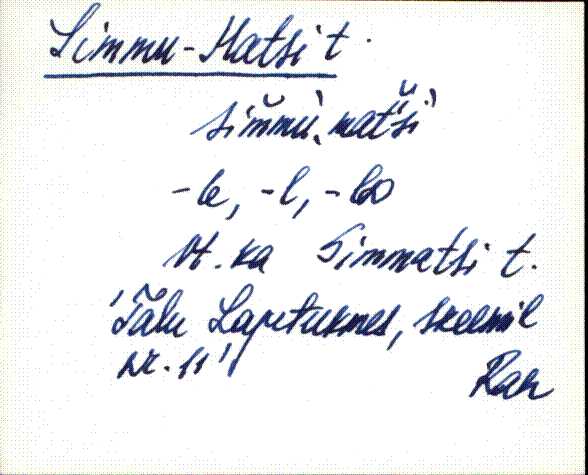 Simmu-Matsi t.
simmu matsi
-le, -l, -lt
vt. ka Simmatsi t.
'Talu Lapetukmes, skeemil
nr. 11'
Ran